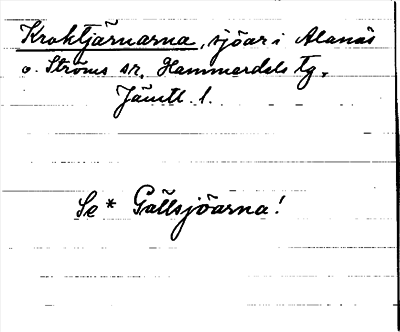 Kroktjärnarna, sjöar i Alanäs
o. Ströms sr, Hammerdals tg,
Jämtl. l.
Se * Gällsjöarna!